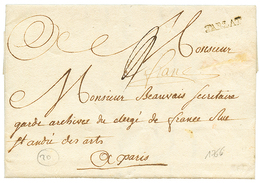 A Monsieur
SARLAT
franc
Monsieur Beauvais secretaire
garde archives de clergé de france Rue
St andré des arts
a paris
20
1786